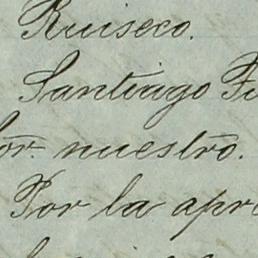 Ruiseco.
Santiago F
or. nuestro.
Por la apr